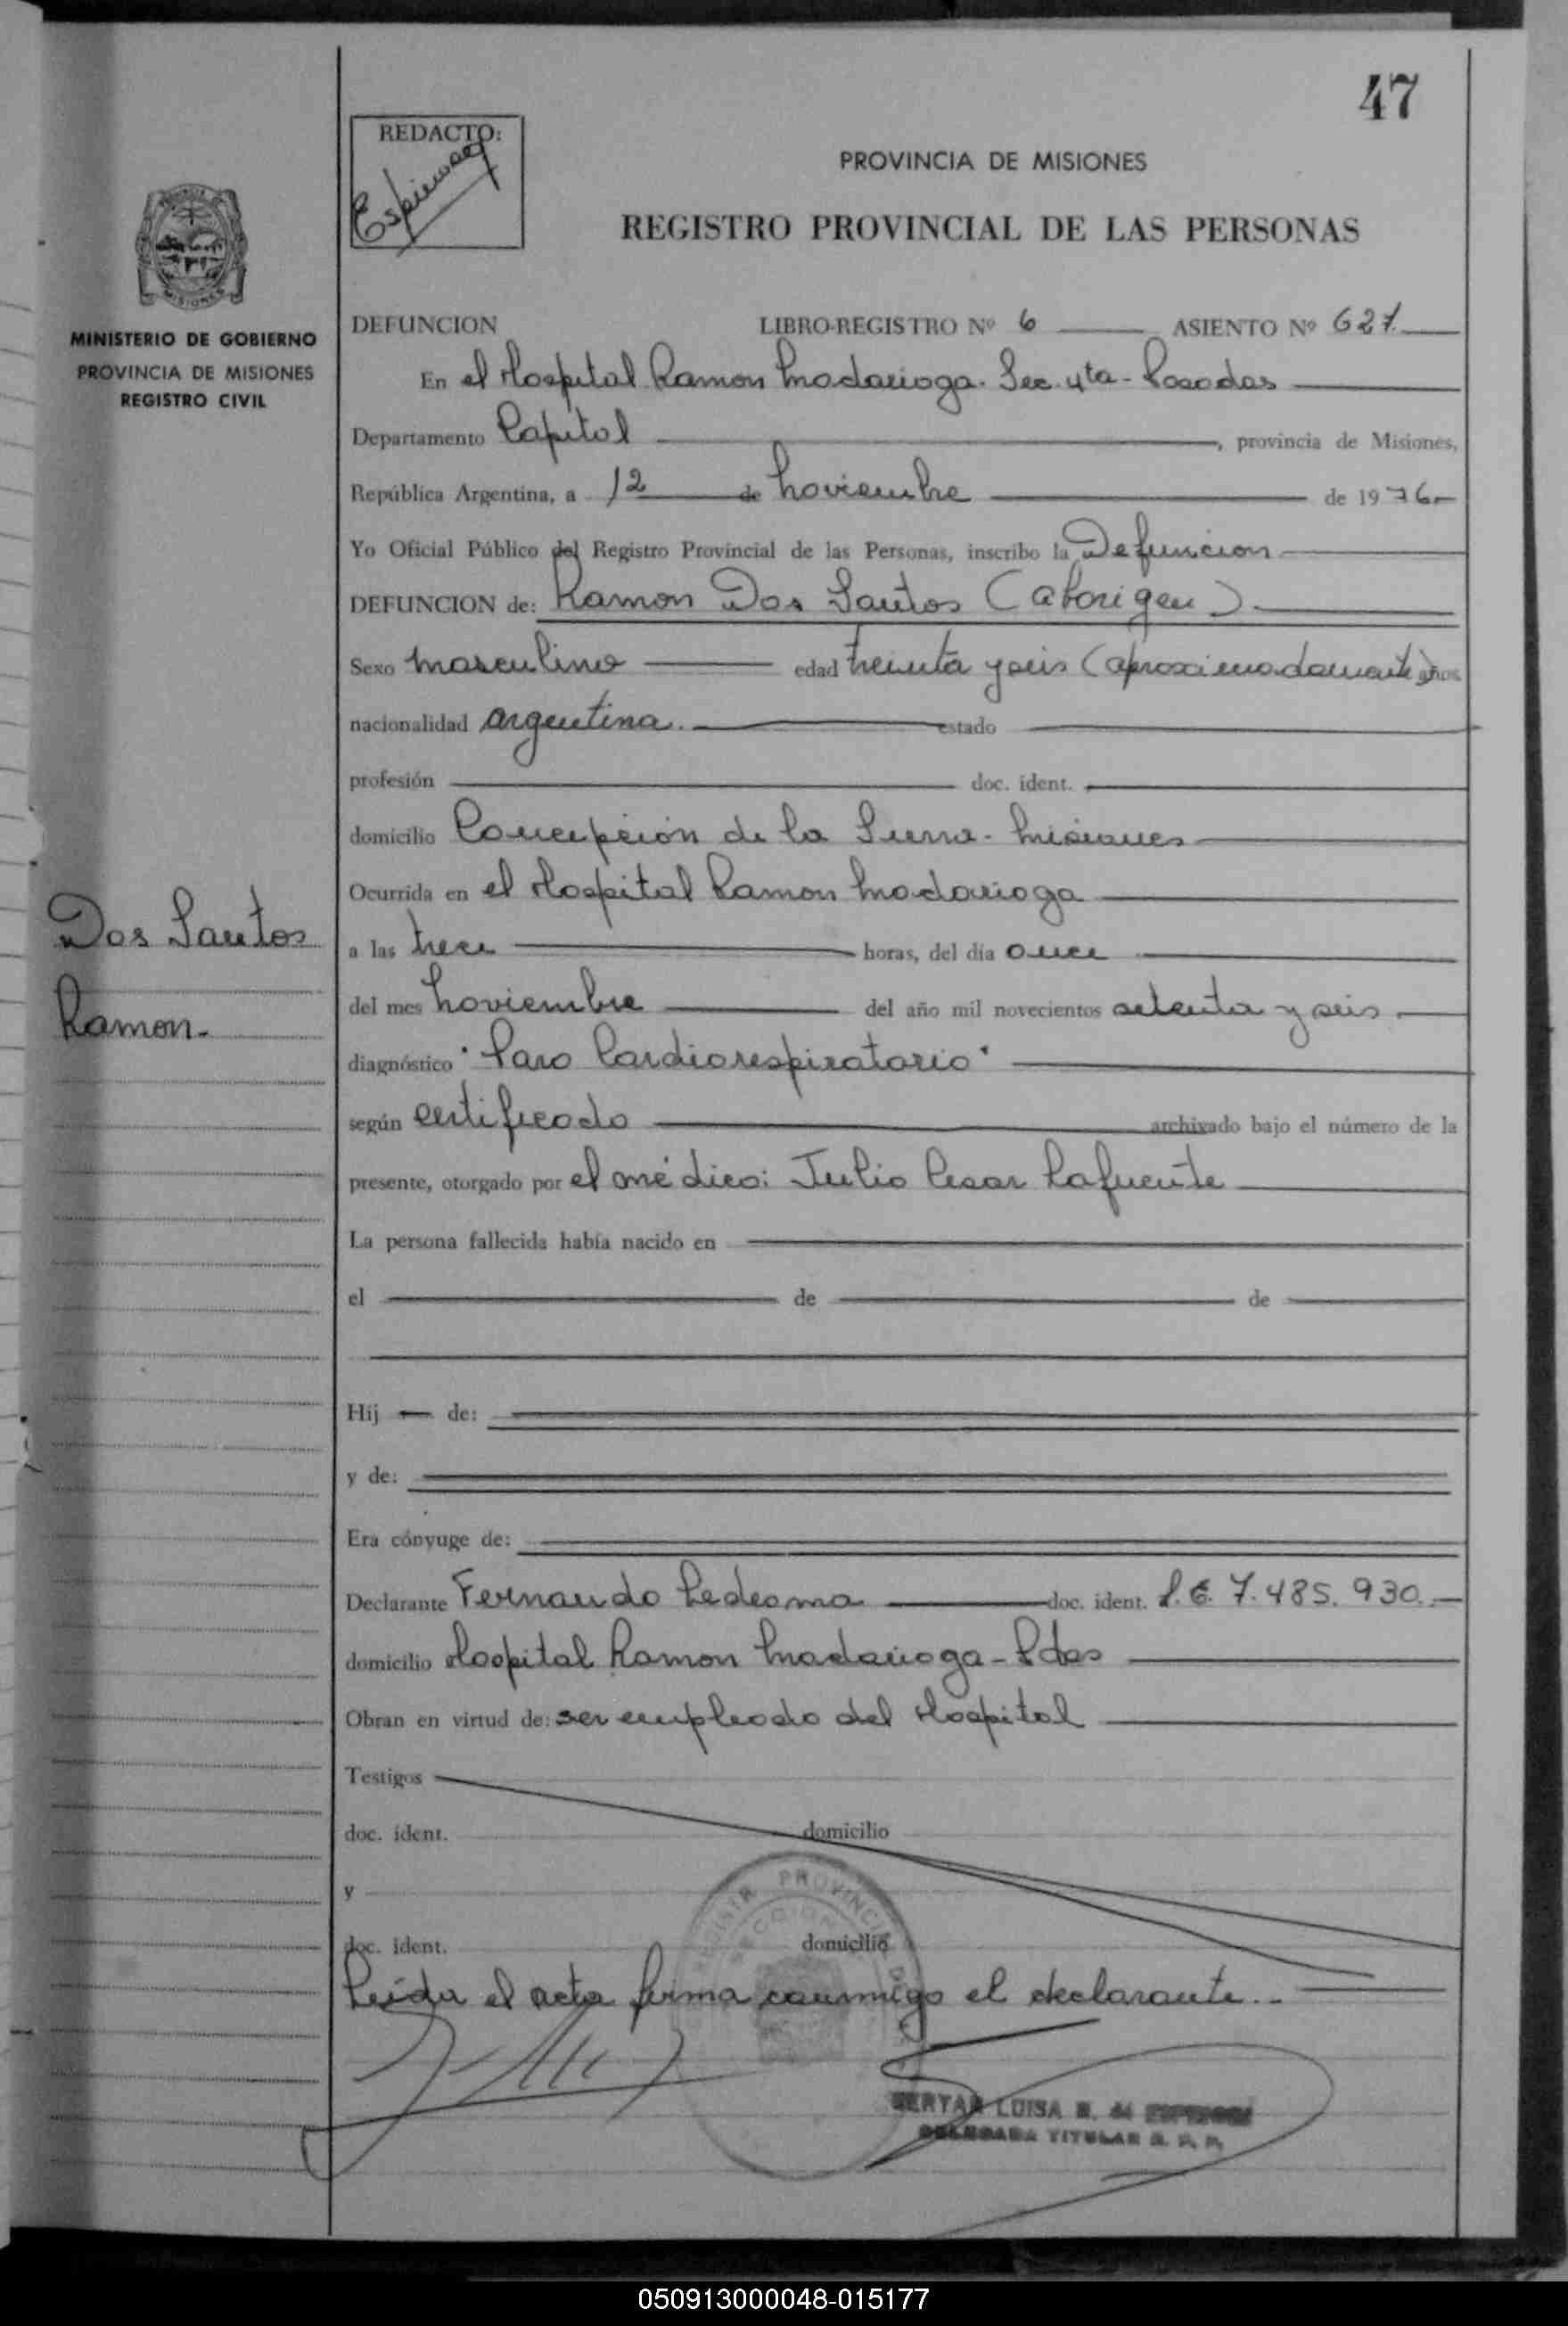 47
REDACTO:
PROVINCIA DE MISIONES
REGISTRO PROVINCIAL DE LAS PERSONAS
MISIONES
MINISTERIO DE GOBIERNO
PROVINCIA DE MISIONES
REGISTRO CIVIL
DEFUNCION LIBRO-REGISTRO Nº 6 ASIENTO Nº 627
En el Hospital Ramon Madariaga. Sec. 4ta - Posadas
Departamento Capital, provincia de Misiones,
República Argentina, a 12 de Noviembre de 1976
Yo Oficial Público del Registro Provincial de las Personas, inscribo la Defuncion
DEFUNCION de: Ramon Dos Santos (aborigen)
Sexo Masculino edad treinta y seis (aproximadamente) años
nacionalidad argentina. estado
profesión doc. ident.
domicilio Concepción de la Sierra - Misiones
Ocurrida en el Hospital Ramon Madariaga
Dos Santos
Ramon.
a las trece horas, del día once
del mes Noviembre del año mil novecientos setenta y seis
diagnóstico "Paro Cardiorespiratorio"
según certificado archivado bajo el número de la
presente, otorgado por el médico: Julio Cesar Lafuente
La persona fallecida había nacido en
el de de
Hij de:
y de:
Era cónyuge de:
Declarante Fernando Ledesma doc. ident. L.E. 7.485.930.
domicilio Hospital Ramon Madariaga - Pdas
Obran en virtud de: ser empleado del Hospital
Testigos
doc. ident. domicilio
y
doc. ident. domicilio
Leida el acta firma conmigo el declarante..
LUISA
TITULAR
050913000048-015177